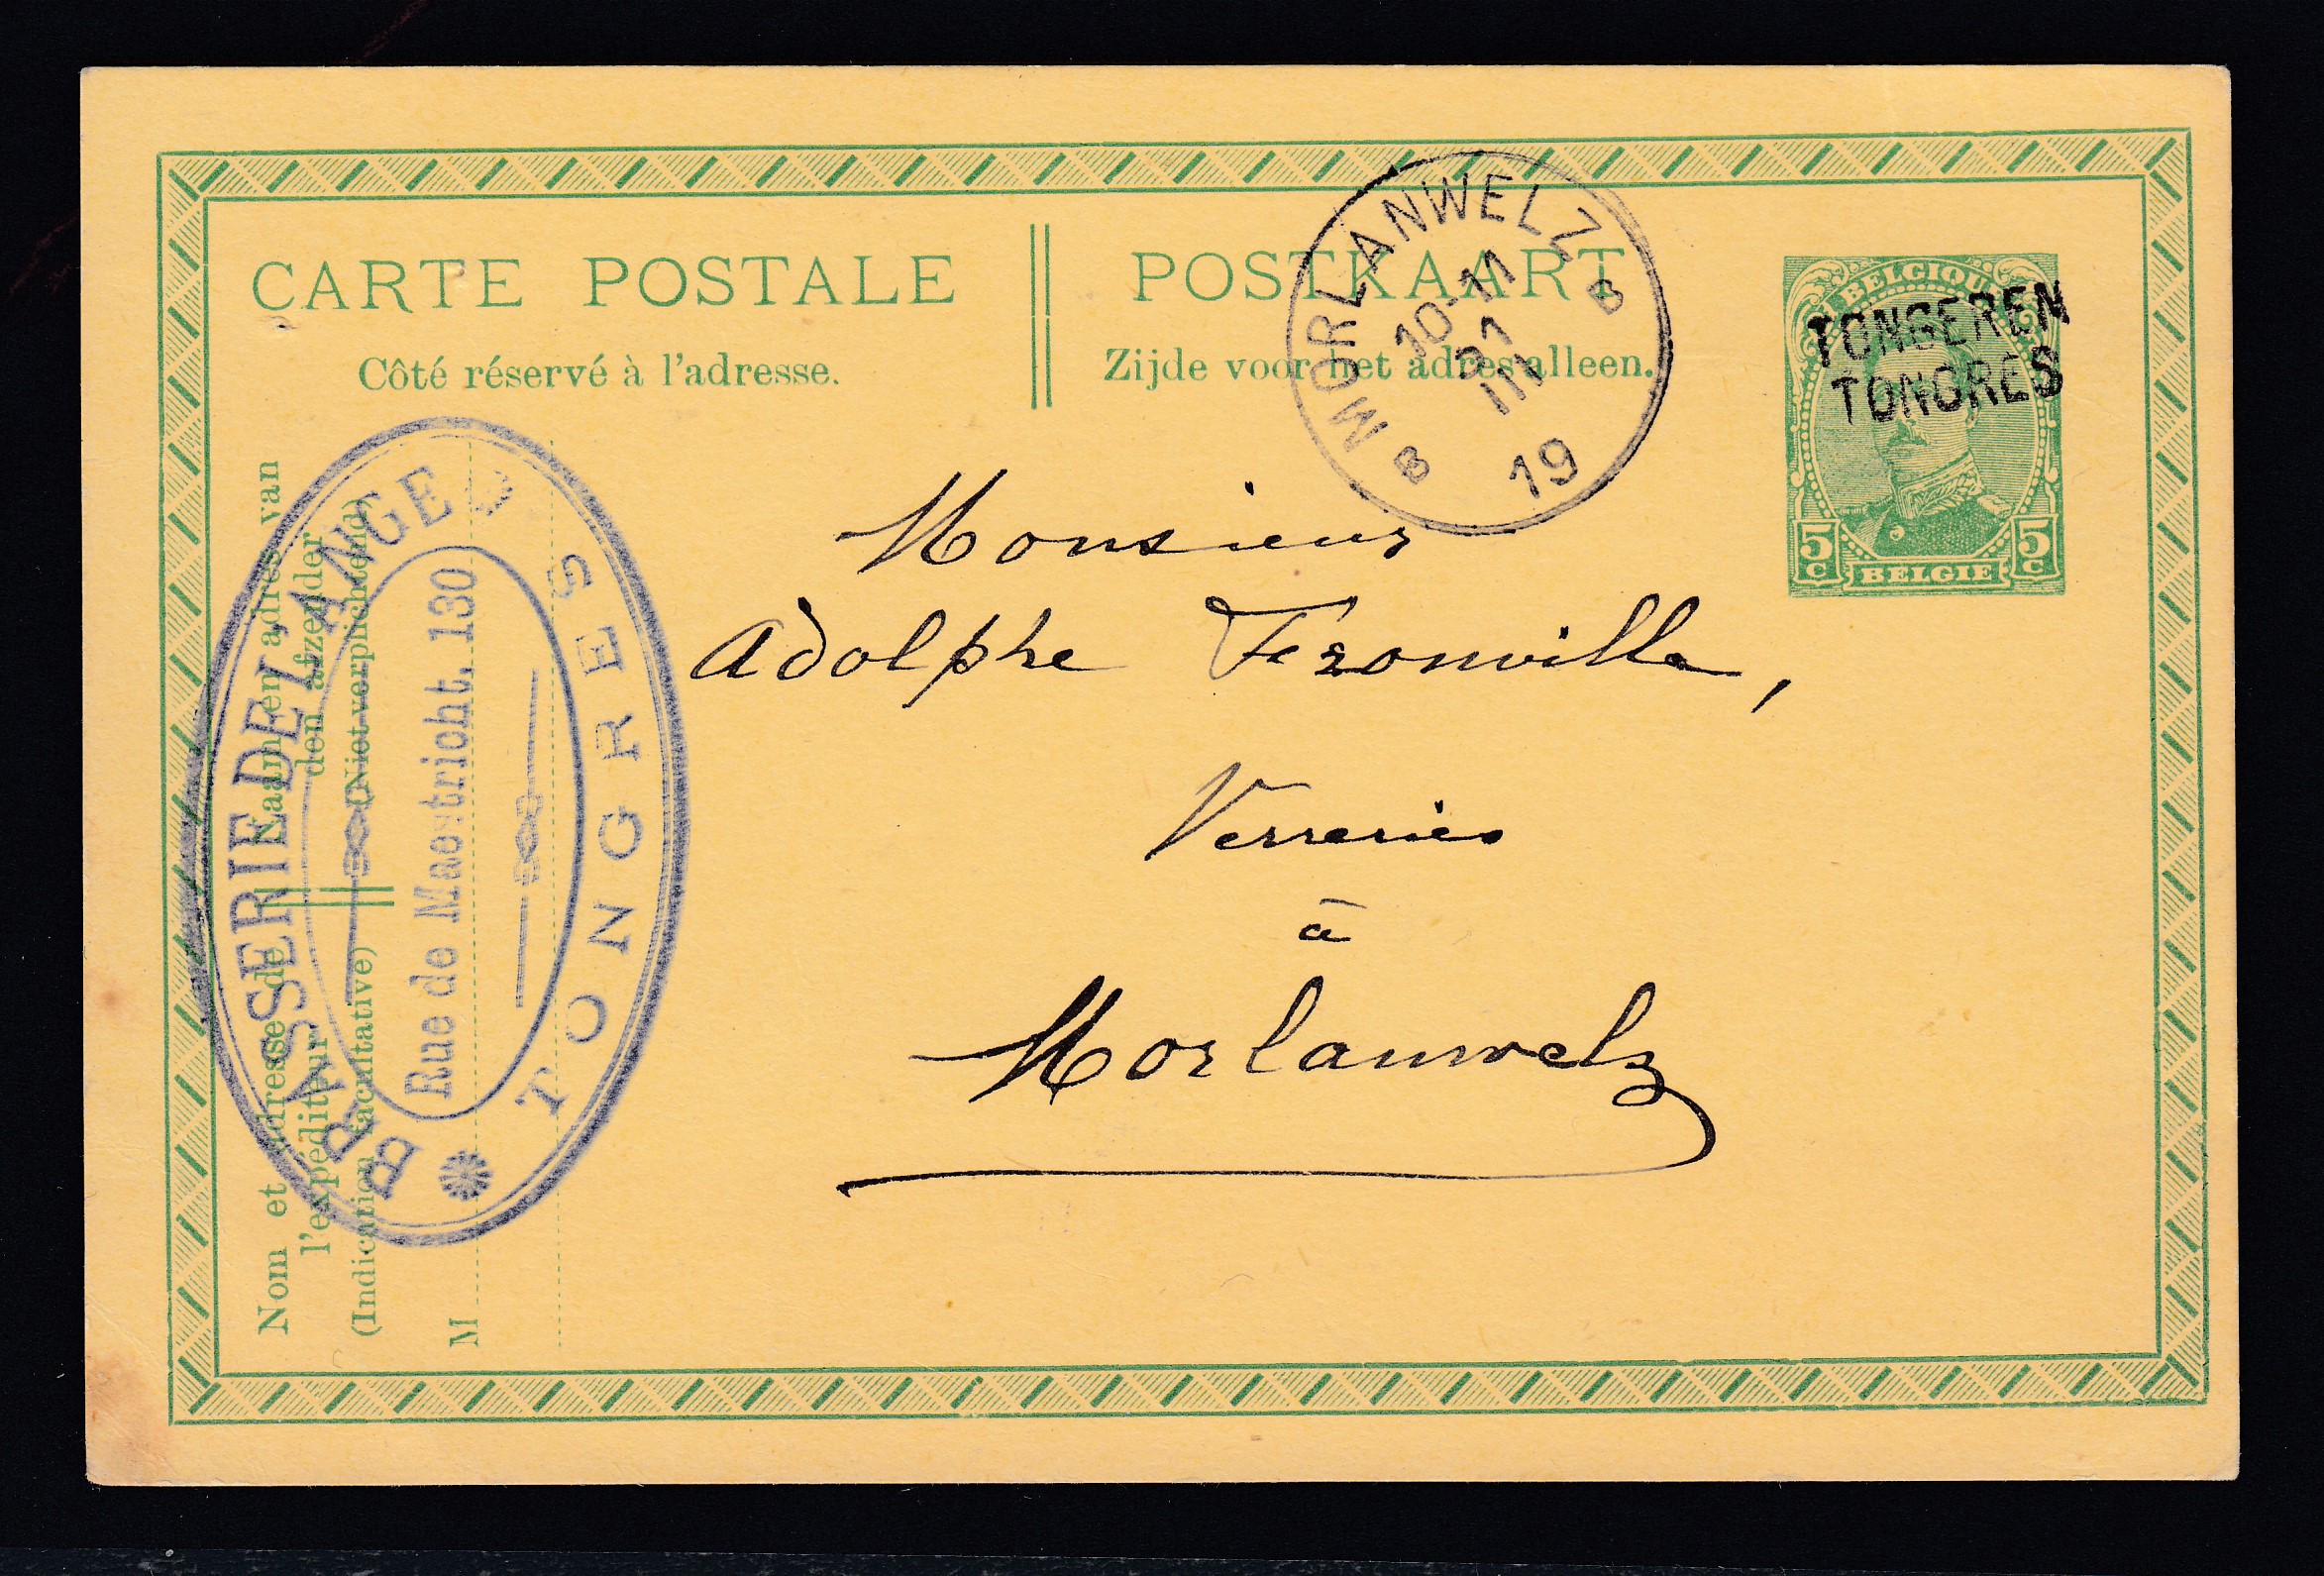 CARTE POSTALE
Côté réservé à l'adresse.
POSTKAART
Zijde voor het adres alleen.
MORLANWELZ
10-11
III
19
B B
BELGIQUE
TONGEREN
TONGRES
5 C BELGIE 5 C
Monsieur
Adolphe Fezonville,
Verreries
à
Morlanwelz
Naam en adres van
den afzender
(Niet verplichtend)
Nom et adresse de
l'expéditeur
(Indication facultative)
M
BRASSERIE DE L'ANGE
Rue de Maestricht. 130
TONGRES